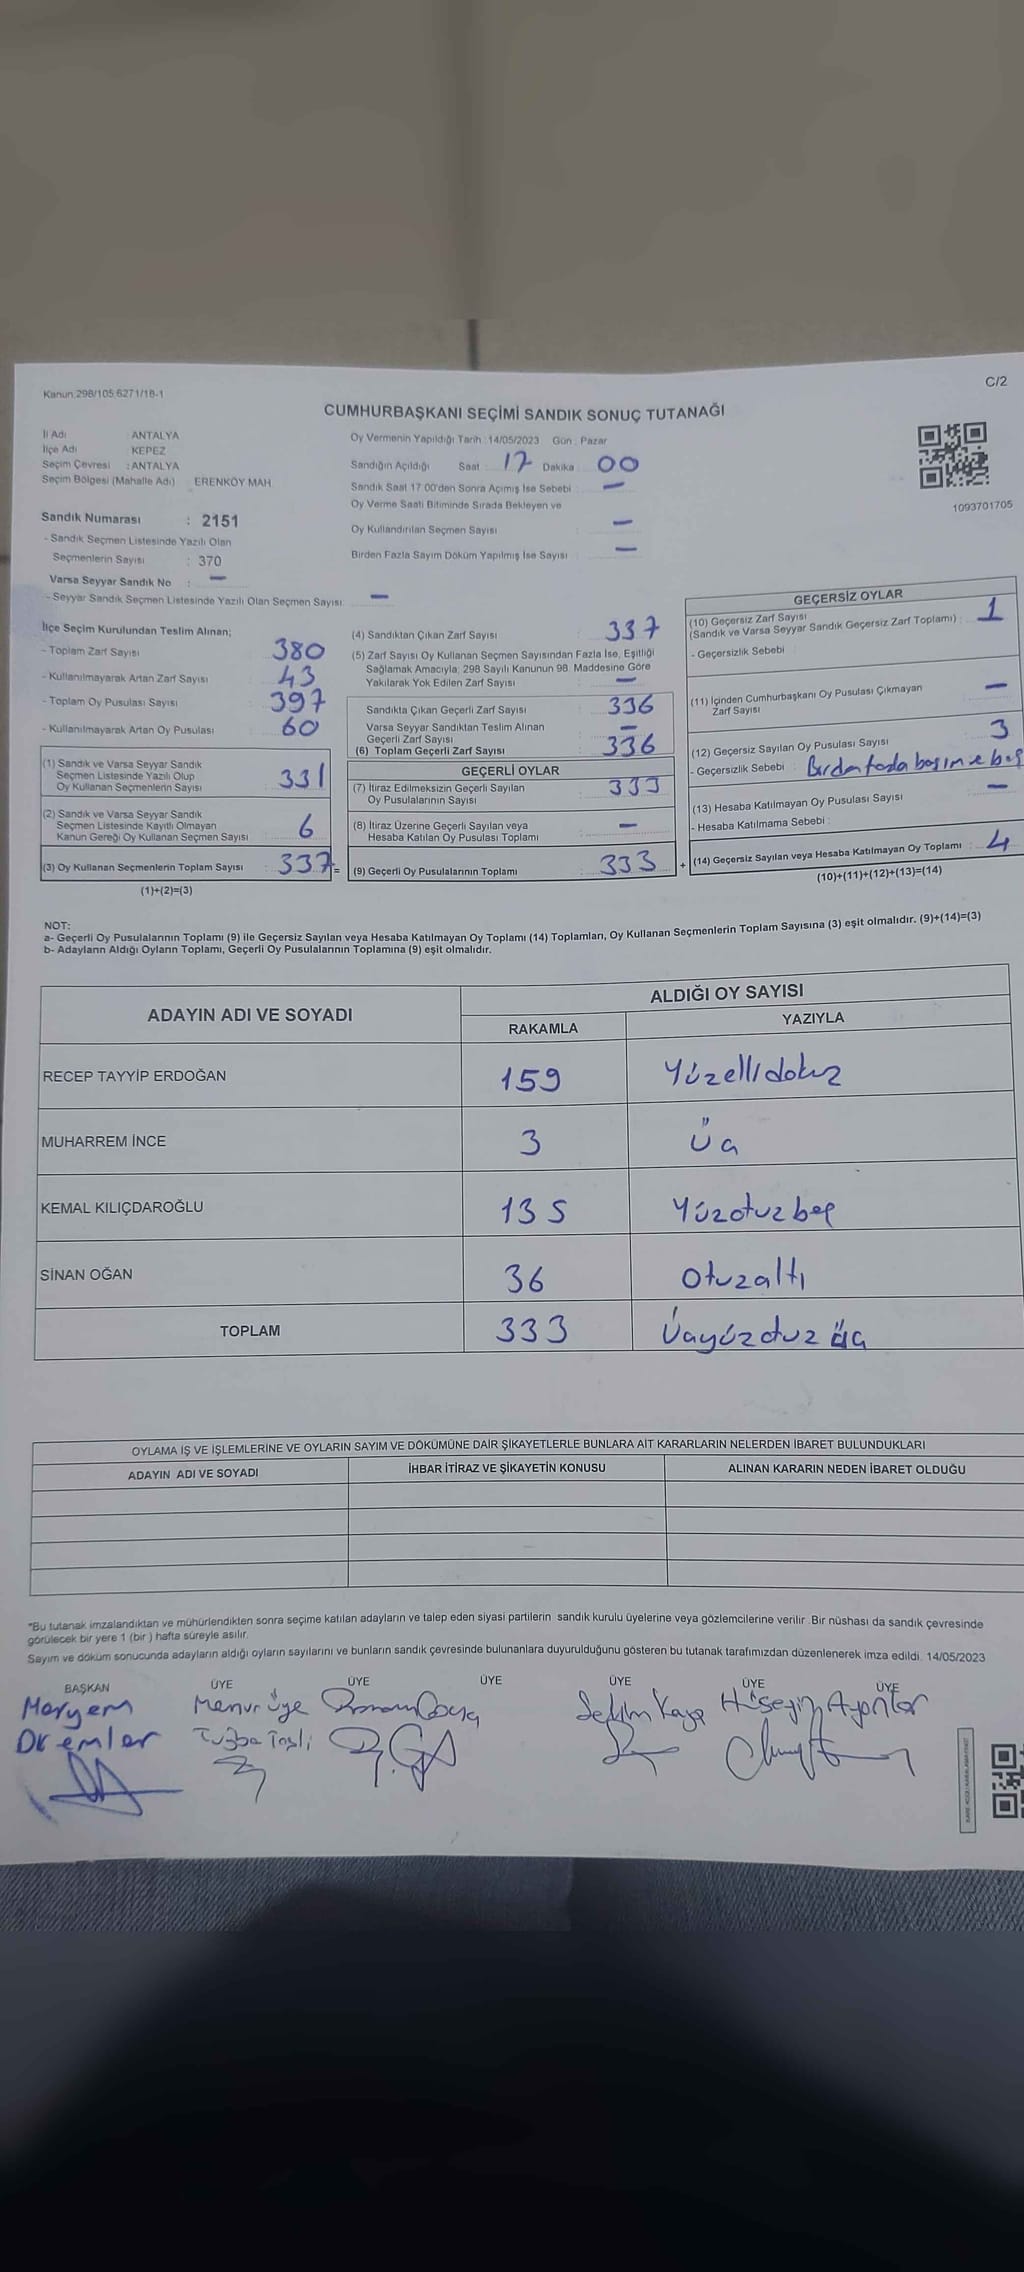 Kanun:298/105.6271/18-1
C/2
CUMHURBAŞKANI SEÇİMİ SANDIK SONUÇ TUTANAĞI
İl Adı : ANTALYA
İlçe Adı : KEPEZ
Seçim Çevresi : ANTALYA
Seçim Bölgesi (Mahalle Adı) ERENKÖY MAH.
Sandık Numarası : 2151
- Sandık Seçmen Listesinde Yazılı Olan
Seçmenlerin Sayısı : 370
Varsa Seyyar Sandık No : -
- Seyyar Sandık Seçmen Listesinde Yazılı Olan Seçmen Sayısı: -
Oy Vermenin Yapıldığı Tarih :14/05/2023 Gün : Pazar
Sandığın Açıldığı Saat : 17 Dakika : 00
Sandık Saat 17.00'den Sonra Açımış İse Sebebi : -
Oy Verme Saati Bitiminde Sırada Bekleyen ve
Oy Kullandırılan Seçmen Sayısı : -
Birden Fazla Sayım Döküm Yapılmış İse Sayısı : -
1093701705
İlçe Seçim Kurulundan Teslim Alınan;
- Toplam Zarf Sayısı : 380
- Kullanılmayarak Artan Zarf Sayısı : 43
- Toplam Oy Pusulası Sayısı : 397
- Kullanılmayarak Artan Oy Pusulası : 60
(1) Sandık ve Varsa Seyyar Sandık
Seçmen Listesinde Yazılı Olup
Oy Kullanan Seçmenlerin Sayısı : 331
(2) Sandık ve Varsa Seyyar Sandık
Seçmen Listesinde Kayıtlı Olmayan
Kanun Gereği Oy Kullanan Seçmen Sayısı : 6
(3) Oy Kullanan Seçmenlerin Toplam Sayısı : 337 =
(1)+(2)=(3)
(4) Sandıktan Çıkan Zarf Sayısı : 337
(5) Zarf Sayısı Oy Kullanan Seçmen Sayısından Fazla İse, Eşitliği
Sağlamak Amacıyla; 298 Sayılı Kanunun 98. Maddesine Göre
Yakılarak Yok Edilen Zarf Sayısı : -
Sandıkta Çıkan Geçerli Zarf Sayısı : 336
Varsa Seyyar Sandıktan Teslim Alınan
Geçerli Zarf Sayısı : -
(6) Toplam Geçerli Zarf Sayısı : 336
GEÇERLİ OYLAR
(7) İtiraz Edilmeksizin Geçerli Sayılan
Oy Pusulalarının Sayısı : 333
(8) İtiraz Üzerine Geçerli Sayılan veya
Hesaba Katılan Oy Pusulası Toplamı : -
(9) Geçerli Oy Pusulalarının Toplamı : 333 +
GEÇERSİZ OYLAR
(10) Geçersiz Zarf Sayısı
(Sandık ve Varsa Seyyar Sandık Geçersiz Zarf Toplamı) : 1
- Geçersizlik Sebebi :
(11) İçinden Cumhurbaşkanı Oy Pusulası Çıkmayan
Zarf Sayısı : -
(12) Geçersiz Sayılan Oy Pusulası Sayısı : 3
- Geçersizlik Sebebi : Birden fazla basım ve boş
(13) Hesaba Katılmayan Oy Pusulası Sayısı : -
- Hesaba Katılmama Sebebi :
(14) Geçersiz Sayılan veya Hesaba Katılmayan Oy Toplamı : 4
(10)+(11)+(12)+(13)=(14)
NOT:
a- Geçerli Oy Pusulalarının Toplamı (9) ile Geçersiz Sayılan veya Hesaba Katılmayan Oy Toplamı (14) Toplamları, Oy Kullanan Seçmenlerin Toplam Sayısına (3) eşit olmalıdır. (9)+(14)=(3)
b- Adayların Aldığı Oyların Toplamı, Geçerli Oy Pusulalarının Toplamına (9) eşit olmalıdır.
ADAYIN ADI VE SOYADI
ALDIĞI OY SAYISI
RAKAMLA YAZIYLA
RECEP TAYYİP ERDOĞAN 159 Yüzellidokuz
MUHARREM İNCE 3 Üç
KEMAL KILIÇDAROĞLU 135 Yüzotuzbeş
SİNAN OĞAN 36 Otuzaltı
TOPLAM 333 Üçyüzotuz üç
OYLAMA İŞ VE İŞLEMLERİNE VE OYLARIN SAYIM VE DÖKÜMÜNE DAİR ŞİKAYETLERLE BUNLARA AİT KARARLARIN NELERDEN İBARET BULUNDUKLARI
ADAYIN ADI VE SOYADI İHBAR İTİRAZ VE ŞİKAYETİN KONUSU ALINAN KARARIN NEDEN İBARET OLDUĞU
*Bu tutanak imzalandıktan ve mühürlendikten sonra seçime katılan adayların ve talep eden siyasi partilerin sandık kurulu üyelerine veya gözlemcilerine verilir. Bir nüshası da sandık çevresinde
görülecek bir yere 1 (bir ) hafta süreyle asılır.
Sayım ve döküm sonucunda adayların aldığı oyların sayılarını ve bunların sandık çevresinde bulunanlara duyurulduğunu gösteren bu tutanak tarafımızdan düzenlenerek imza edildi. 14/05/2023
BAŞKAN ÜYE ÜYE ÜYE ÜYE ÜYE ÜYE
Meryem Memur üye Selim Kaya Hüseyin
Tuğba